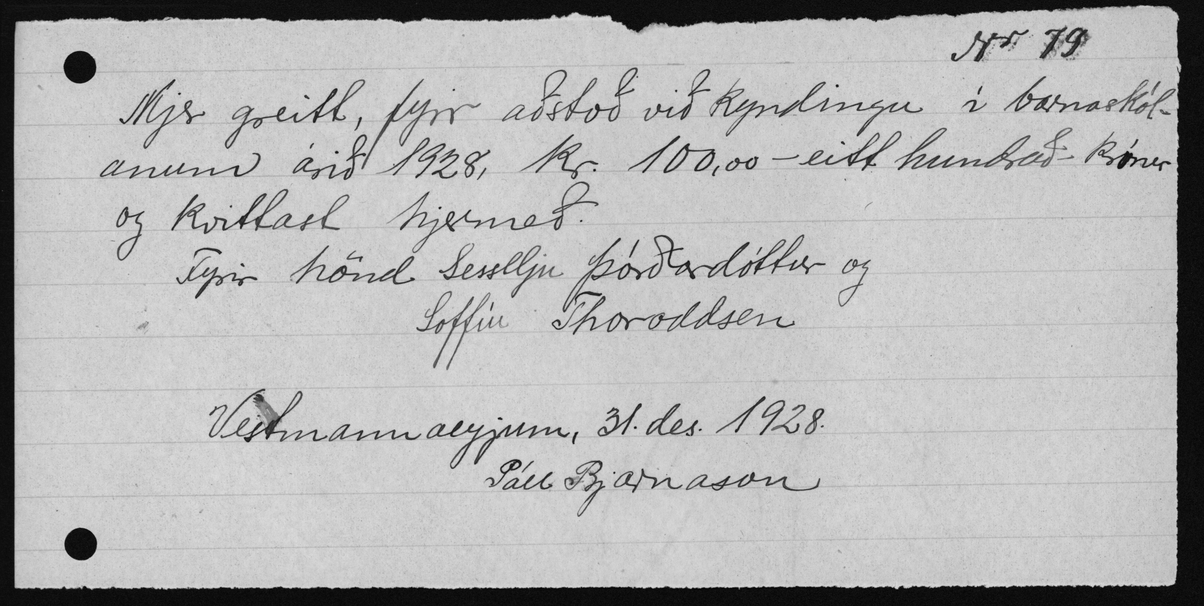 Nr 79
Mjer greitt, fyrir aðstoð við kyndingu í barnaskól-
anum árið 1928, kr. 100,00 - eitt hundrað - krónur
og kvittast hjermeð.
Fyrir hönd Sesselju Þórðardóttur og
Soffíu Thoroddsen
Vestmannaeyjum, 31. des. 1928.
Páll Bjarnason